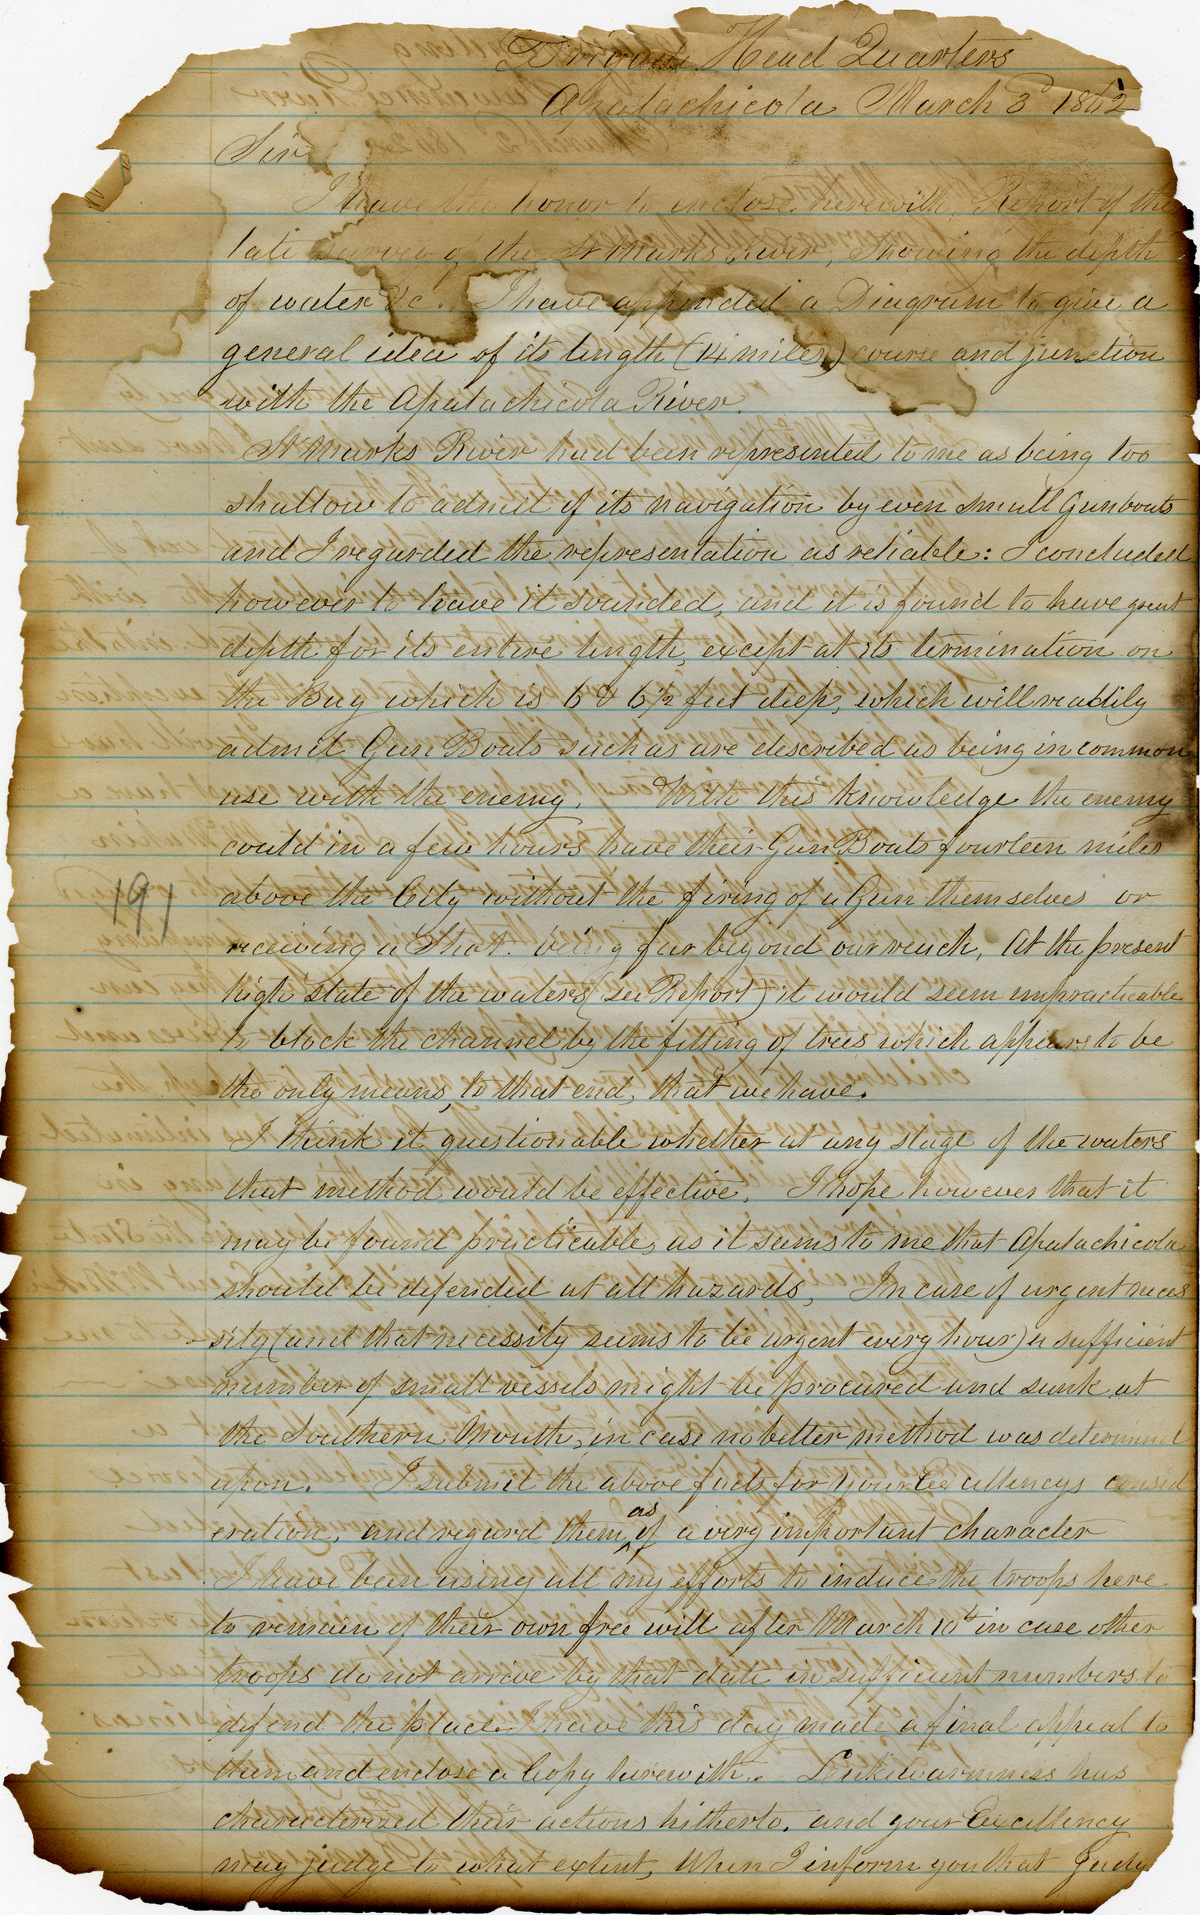 Brigade Head Quarters
Apalachicola March 3d 1862
Sir
I have the honor to inclose herewith, Report of the
late survey of the St Marks River, showing the depth
of water &c. I have appended a Diagram to give a
general idea of its length (14 miles) course and junction
with the Apalachicola River.
St Marks River had been represented to me as being too
shallow to admit of its navigation by even small Gunboats
and I regarded the representation as reliable: I concluded
however to have it sounded, and it is found to have great
depth for its entire length, except at its termination on
the Bay which is 6 & 6½ feet deep, which will readily
admit Gun Boats such as are described as being in common
use with the enemy. With this knowledge the enemy
could in a few hours have their Gun Boats fourteen miles
above the City without the firing of a Gun themselves or
receiving a Shot. being far beyond our reach, At the present
high state of the waters (see Report) it would seem impracticable
to block the channel by the felling of trees which appears to be
the only means, to that end, that we have.
I think it questionable whether at any stage of the waters
that method would be effective. I hope however that it
may be found practicable, as it seems to me that Apalachicola
should be defended at all hazards, In case of urgent neces
-sity (and that necessity seems to be urgent every hour) a sufficient
number of small vessels might be procured and sunk at
the Southern Mouth, in case no better method was determined
upon. I submit the above facts for your Excellencys consid
eration, and regard them as of a very important character
I have been using all my efforts to induce the troops here
to remain of their own free will after March 10th in case other
troops do not arrive by that date in sufficient numbers to
defend the place. I have this day made a final appeal to
them and enclose a Copy herewith. Lukewarmness has
characterized their actions hitherto. and your Excellency
may judge to what extent, When I inform you that Judge
191